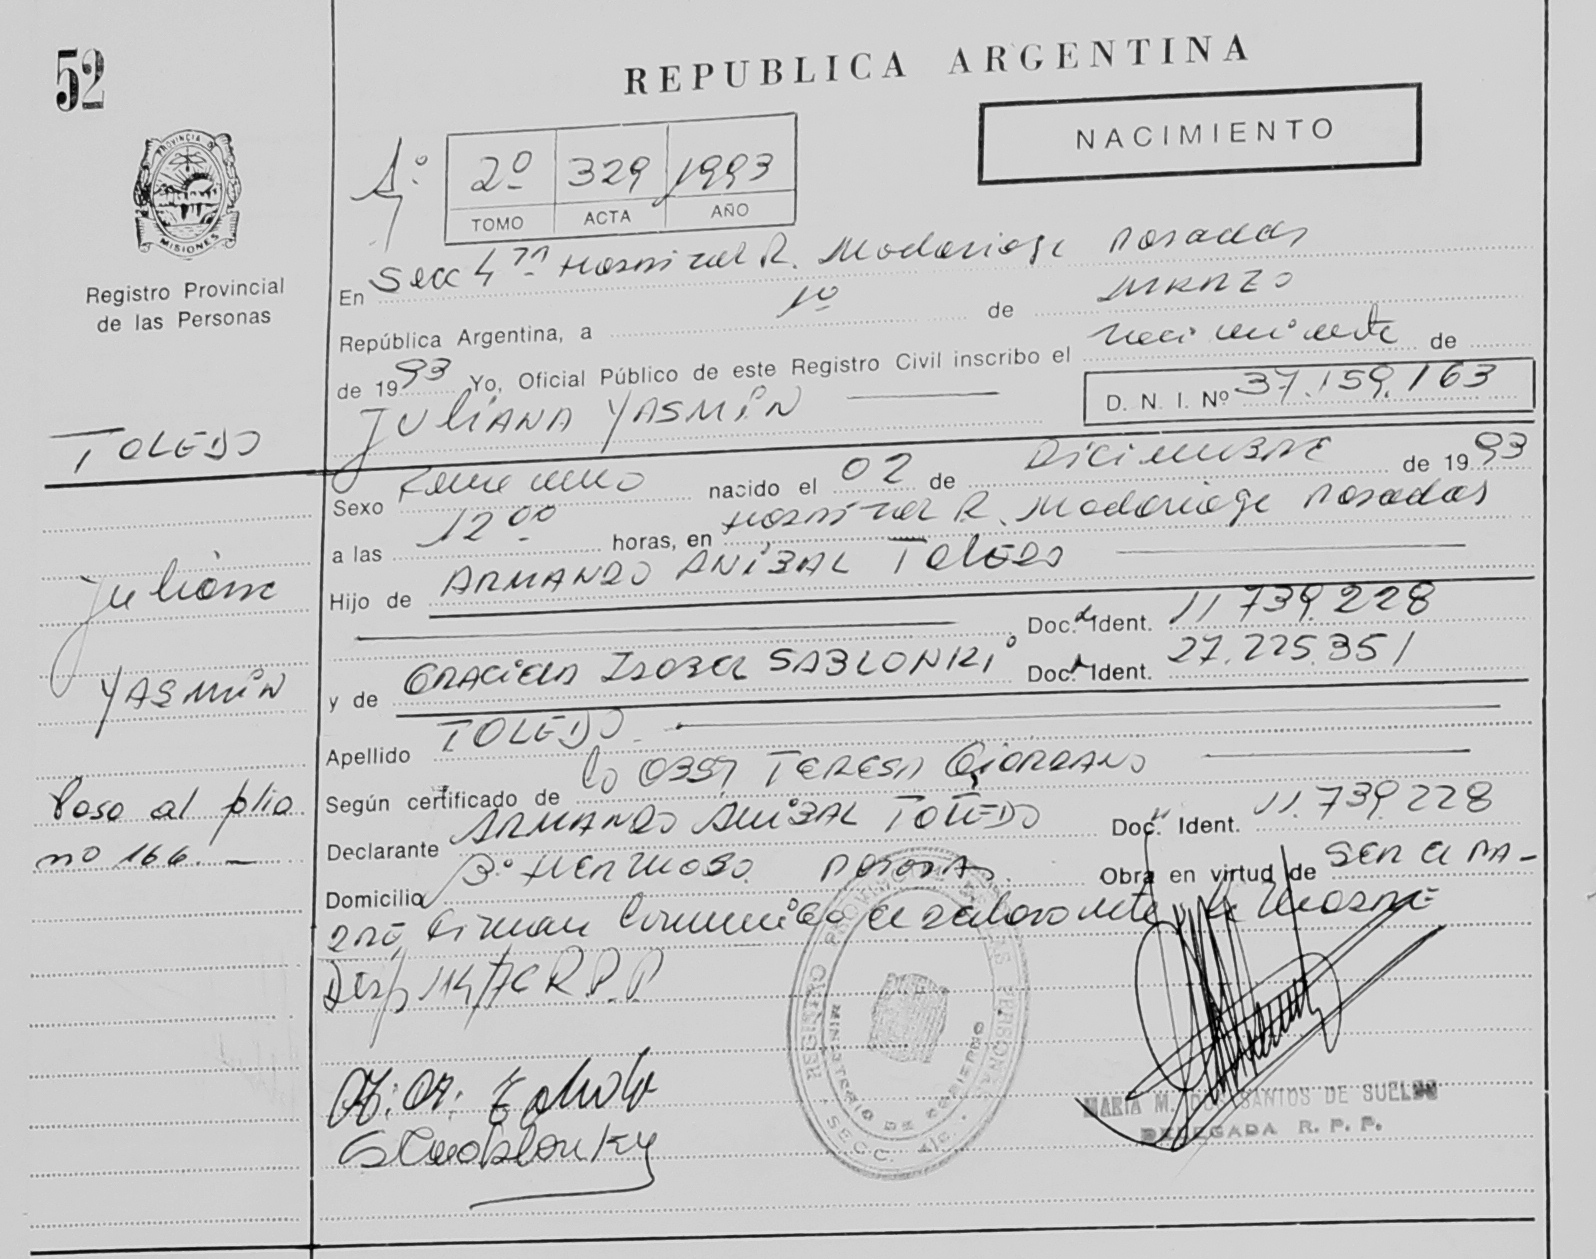 52
REPUBLICA ARGENTINA
NACIMIENTO
2º 329 1993
TOMO ACTA AÑO
PROVINCIA DE MISIONES
Registro Provincial
de las Personas
En Secc 4ta Hospital R. Madariaga Posadas
República Argentina, a 1º de MARZO
de 1993 Yo, Oficial Público de este Registro Civil inscribo el nacimiento de
JULIANA YASMÍN D. N. I. Nº 37.159.163
TOLEDO
Sexo Femenino nacido el 02 de DICIEMBRE de 1993
a las 12 00 horas, en Hospital R. Madariaga Posadas
Hijo de ARMANDO ANÍBAL TOLEDO
Doc. Ident. 11.739.228
y de GRACIELA ISABEL SABLONKI Doc. Ident. 27.225.351
Juliana
YASMÍN
Apellido TOLEDO
Según certificado de 0357 TERESA GIORDANO
Paso al folio
nº 166.
Declarante ARMANDO ANIBAL TOLEDO Doc. Ident. 11.739.228
Domicilio Bº HERMOSO Obra en virtud de SER EL PA-
DRE, firman
114/ R.P.P
REGISTRO PROVINCIAL DE LAS PERSONAS
MINISTERIO DE GOBIERNO
SECC. 4ta.
MARIA M. DOS SANTOS DE SUELDO
DELEGADA R. P. P.